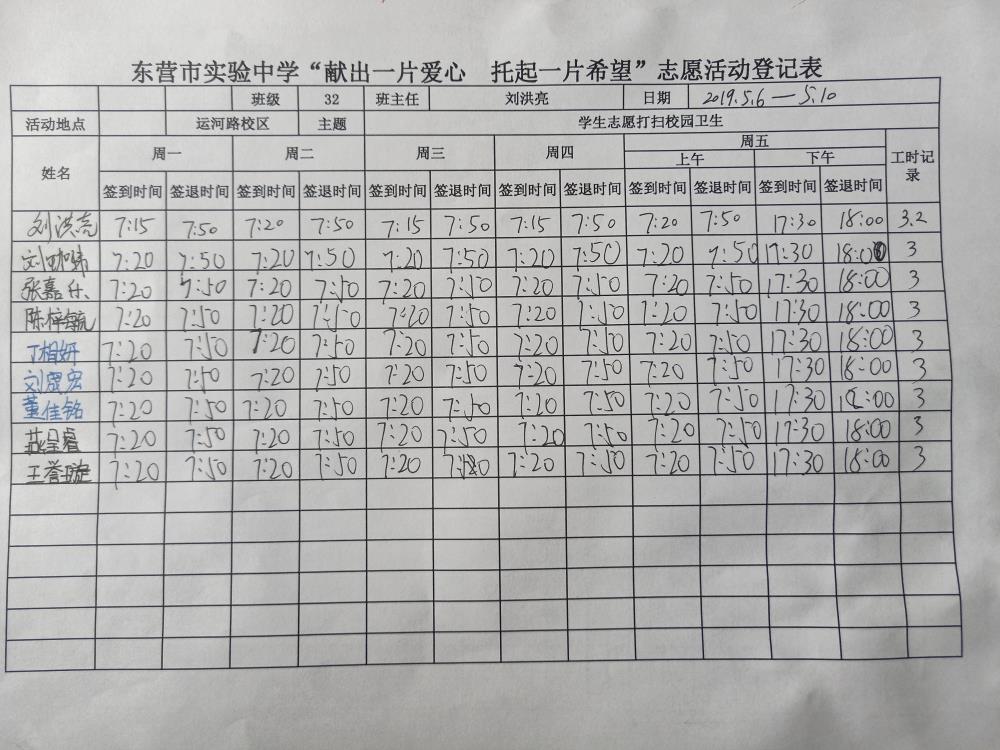 东营市实验中学“献出一片爱心 托起一片希望”志愿活动登记表
班级 32 班主任 刘洪亮 日期 2019.5.6—5.10
活动地点 运河路校区 主题 学生志愿打扫校园卫生
姓名 周一 周二 周三 周四 周五 工时记录
上午 下午
签到时间 签退时间 签到时间 签退时间 签到时间 签退时间 签到时间 签退时间 签到时间 签退时间 签到时间 签退时间
刘洪亮 7:15 7:50 7:20 7:50 7:15 7:50 7:15 7:50 7:20 7:50 17:30 18:00 3.2
7:20 7:50 7:20 7:50 7:20 7:50 7:20 7:50 7:20 7:50 17:30 18:00 3
张嘉 7:20 7:50 7:20 7:50 7:20 7:50 7:20 7:50 7:20 7:50 17:30 18:00 3
陈梓毓 7:20 7:50 7:20 7:50 7:20 7:50 7:20 7:50 7:20 7:50 17:30 18:00 3
丁相妍 7:20 7:50 7:20 7:50 7:20 7:50 7:20 7:50 7:20 7:50 17:30 18:00 3
刘晟宏 7:20 7:50 7:20 7:50 7:20 7:50 7:20 7:50 7:20 7:50 17:30 18:00 3
董佳铭 7:20 7:50 7:20 7:50 7:20 7:50 7:20 7:50 7:20 7:50 17:30 18:00 3
7:20 7:50 7:20 7:50 7:20 7:50 7:20 7:50 7:20 7:50 17:30 18:00 3
王誉璇 7:20 7:50 7:20 7:50 7:20 7:50 7:20 7:50 7:20 7:50 17:30 18:00 3